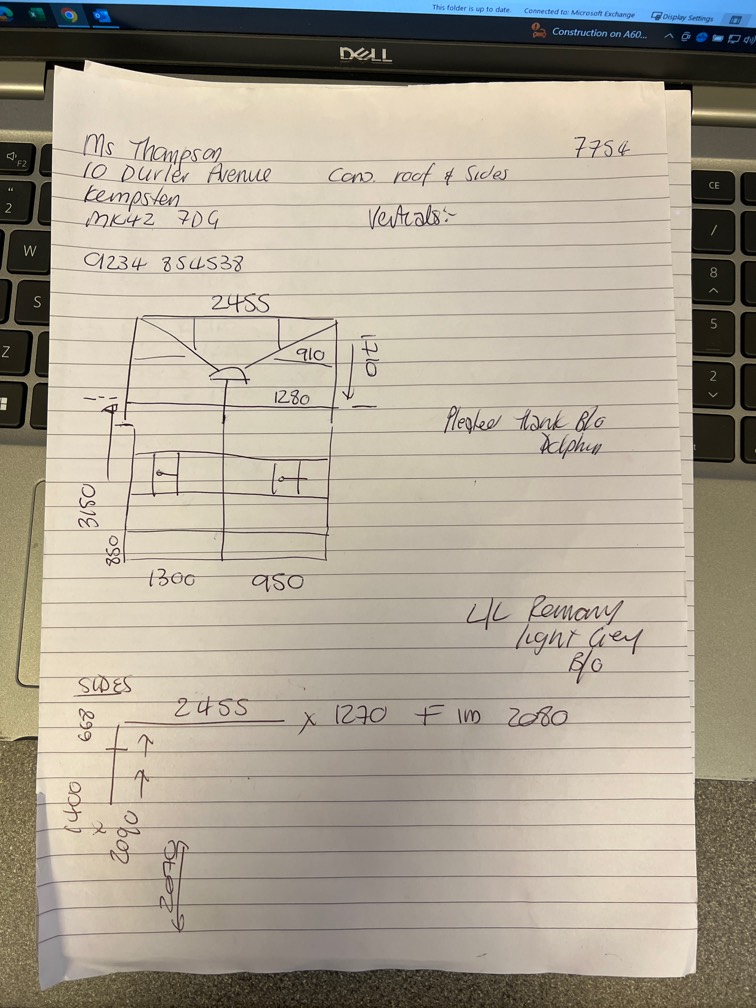 This folder is up to date.
Connected to: Microsoft Exchange
Display Settings
Construction on A60...
DELL
F2
"
2
W
S
Z
CE
/
8
5
2
Ms Thompson
7754
10 Durler Avenue
Con. roof & Sides
Kempsten
MK42 7DG
Verticals:-
01234 854538
2455
910
1710
1280
Pleated Hank B/o
Dolphin
3150
850
1300
950
L/L Remany
light Grey
B/o
SIDES
2455
x 1270 F im 2080
668
1400
x
2090
2070